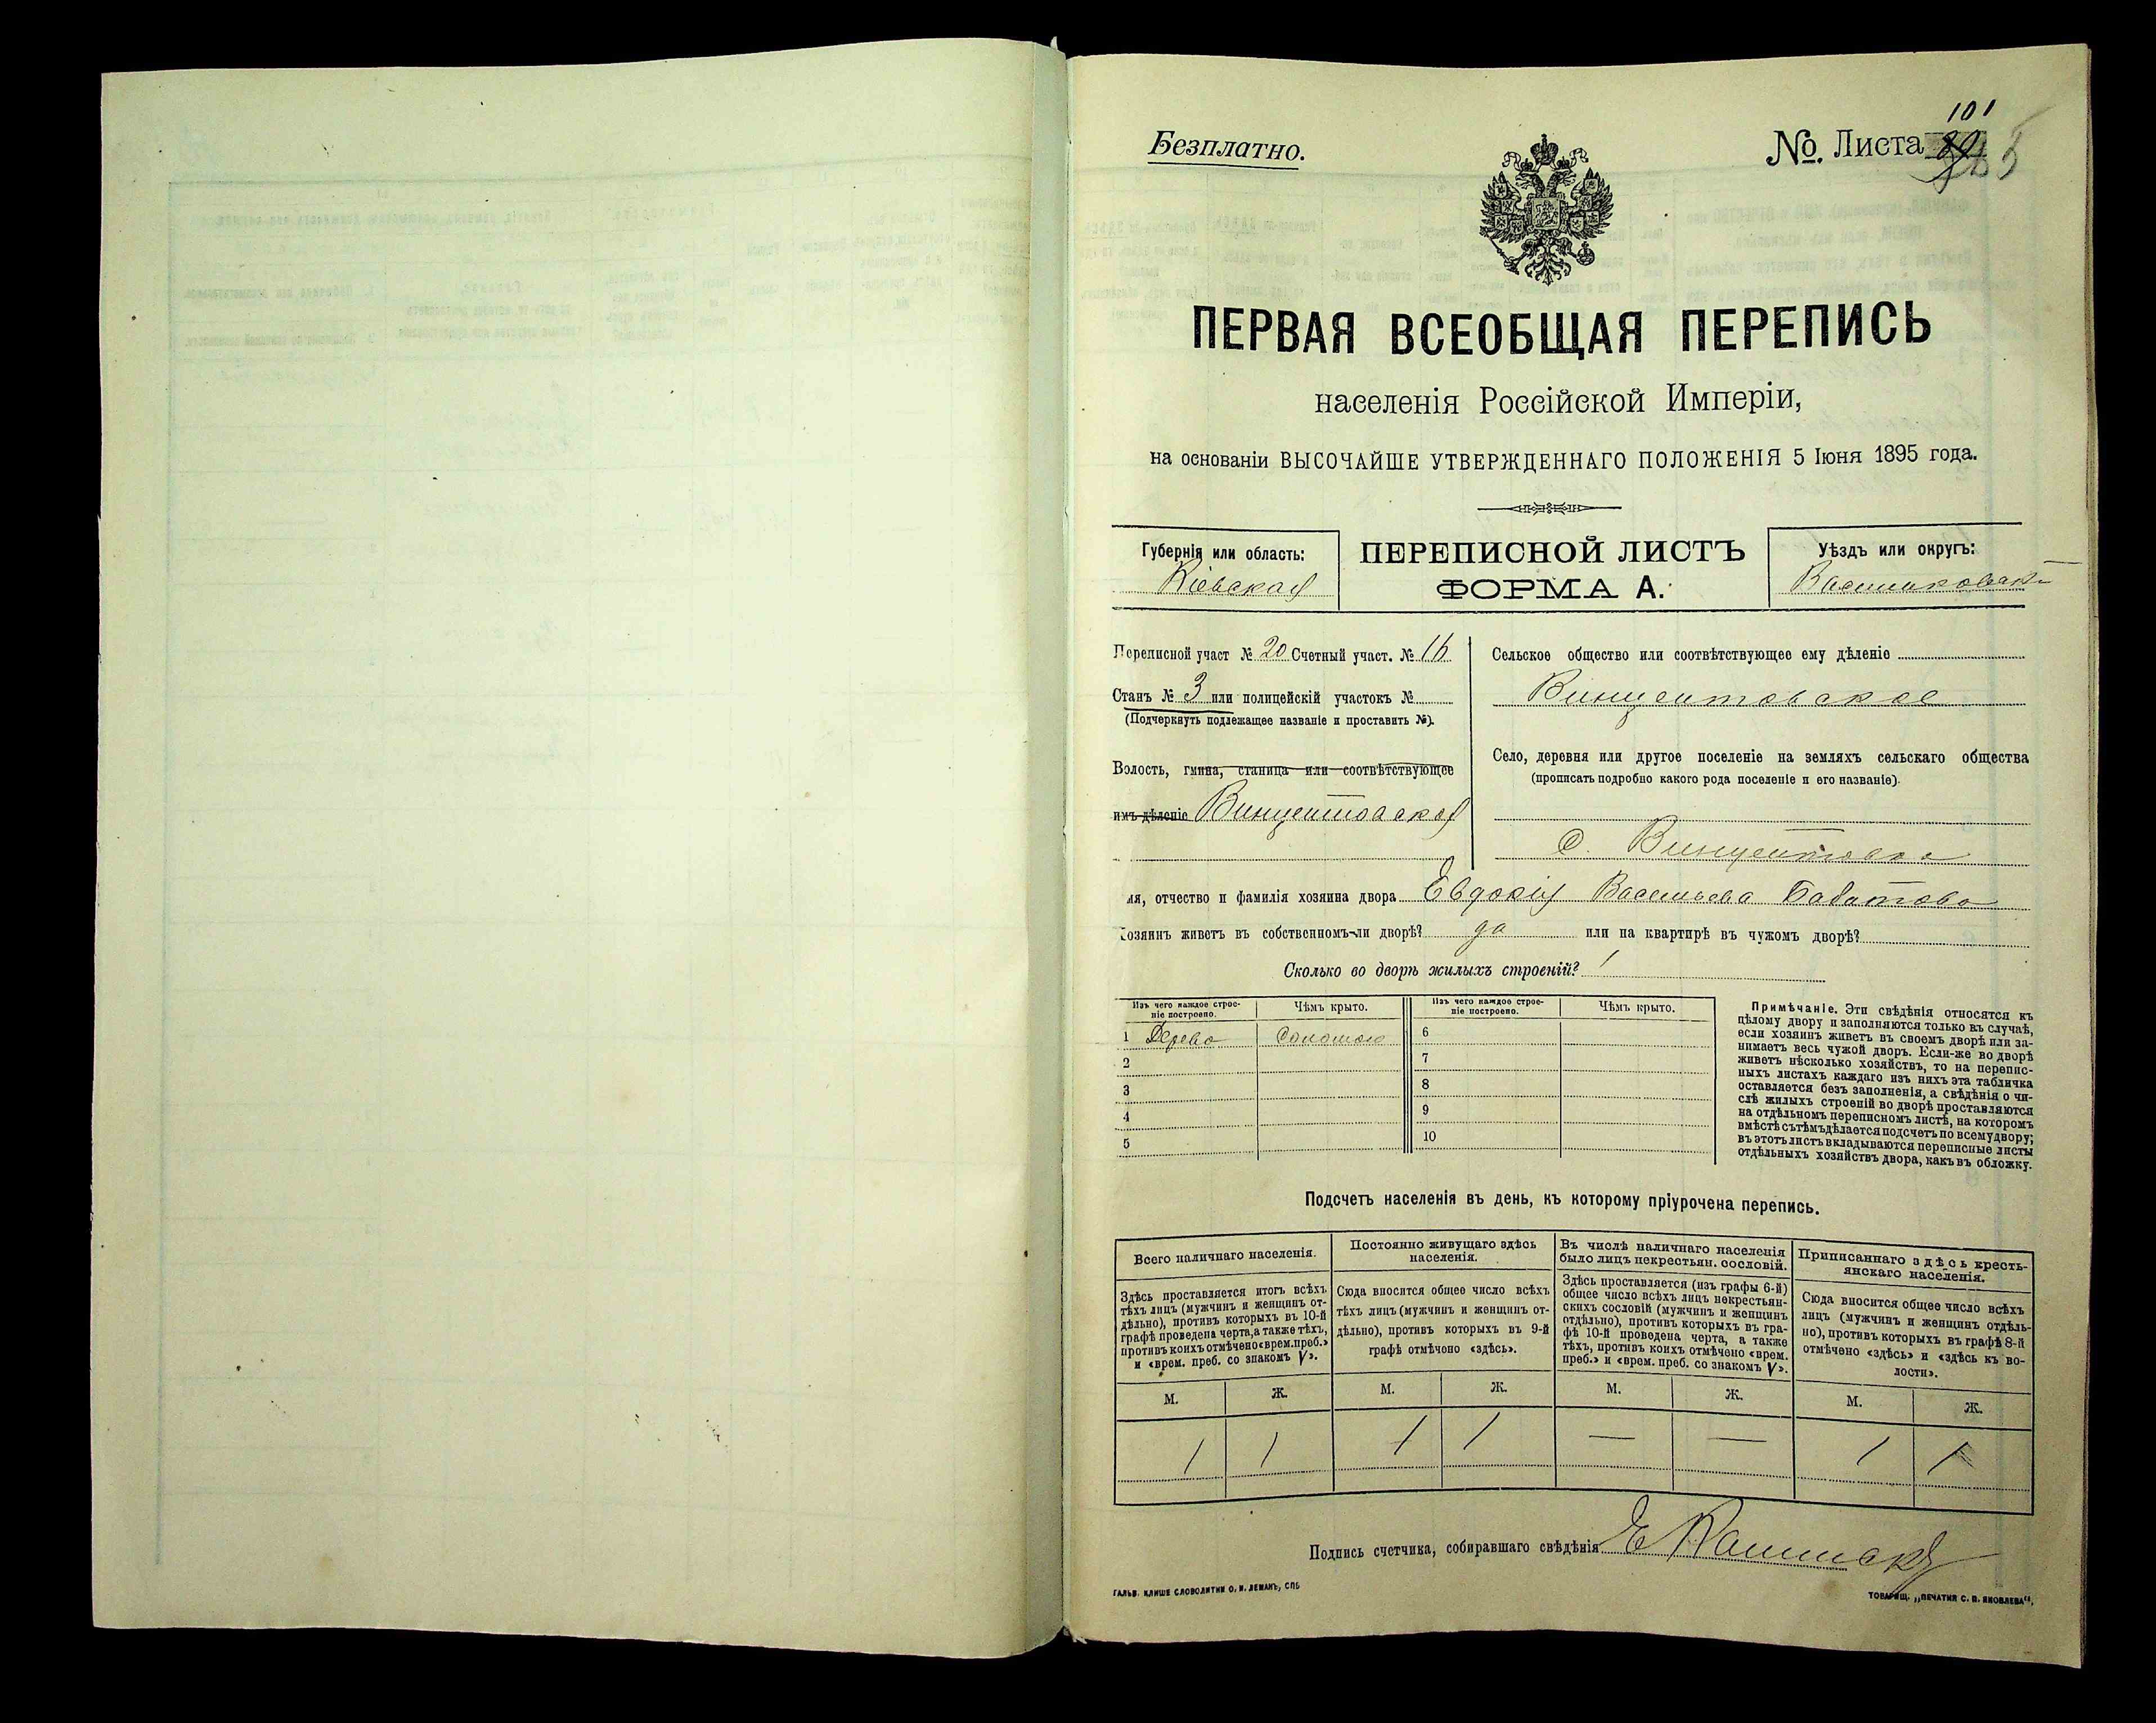 Безплатно.
No. Листа 101
ПЕРВАЯ ВСЕОБЩАЯ ПЕРЕПИСЬ
населенія Россійской Имперіи,
на основаніи ВЫСОЧАЙШЕ УТВЕРЖДЕННАГО ПОЛОЖЕНІЯ 5 Іюня 1895 года.
Губернія или область:
Кіевская
ПЕРЕПИСНОЙ ЛИСТЪ
ФОРМА А.
Уѣздъ или округъ:
Васильковскій
Переписной участ № 20 Счетный участ. № 16
Станъ № 3 или полицейскій участокъ №
(Подчеркнуть подлежащее названіе и проставить №).
Волость, гмина, станица или соотвѣтствующее
имъ дѣленіе Винцентовская
Сельское общество или соотвѣтствующее ему дѣленіе
Винцентовское
Село, деревня или другое поселеніе на земляхъ сельскаго общества
(прописать подробно какого рода поселеніе и его названіе).
с. Винцентовка
мя, отчество и фамилія хозяина двора Евдокія Васильева
Хозяинъ живетъ въ собственномъ-ли дворѣ? да или на квартирѣ въ чужомъ дворѣ?
Сколько во дворѣ жилыхъ строеній? 1
Изъ чего каждое строе-
ніе построено.
Чѣмъ крыто.
Изъ чего каждое строе-
ніе построено.
Чѣмъ крыто.
1 Дерево Соломою 6
2 7
3 8
4 9
5 10
Примѣчаніе. Эти свѣдѣнія относятся къ
цѣлому двору и заполняются только въ случаѣ,
если хозяинъ живетъ въ своемъ дворѣ или за-
нимаетъ весь чужой дворъ. Если-же во дворѣ
живетъ нѣсколько хозяйствъ, то на перепис-
ныхъ листахъ каждаго изъ нихъ эта табличка
оставляется безъ заполненія, а свѣдѣнія о чи-
слѣ жилыхъ строеній во дворѣ проставляются
на отдѣльномъ переписномъ листѣ, на которомъ
вмѣстѣ съ тѣмъ дѣлается подсчетъ по всему двору;
въ этотъ листъ вкладываются переписные листы
отдѣльныхъ хозяйствъ двора, какъ въ обложку.
Подсчетъ населенія въ день, къ которому пріурочена перепись.
Всего наличнаго населенія.
Здѣсь проставляется итогъ всѣхъ
тѣхъ лицъ (мужчинъ и женщинъ от-
дѣльно), противъ которыхъ въ 10-й
графѣ проведена черта, а также тѣхъ,
противъ коихъ отмѣчено «врем. преб.»
и «врем. преб. со знакомъ V».
Постоянно живущаго здѣсь
населенія.
Сюда вносится общее число всѣхъ
тѣхъ лицъ (мужчинъ и женщинъ от-
дѣльно), противъ которыхъ въ 9-й
графѣ отмѣчено «здѣсь».
Въ числѣ наличнаго населенія
было лицъ некрестьян. сословій.
Здѣсь проставляется (изъ графы 6-й)
общее число всѣхъ лицъ некрестьян-
скихъ сословій (мужчинъ и женщинъ
отдѣльно), противъ которыхъ въ гра-
фѣ 10-й проведена черта, а также
тѣхъ, противъ коихъ отмѣчено «врем.
преб.» и «врем. преб. со знакомъ V».
Приписаннаго здѣсь кресть-
янскаго населенія.
Сюда вносится общее число всѣхъ
лицъ (мужчинъ и женщинъ отдѣль-
но), противъ которыхъ въ графѣ 8-й
отмѣчено «здѣсь» и «здѣсь къ во-
лости».
М. Ж. М. Ж. М. Ж. М. Ж.
1 1 1 1 — — 1 1
Подпись счетчика, собиравшаго свѣдѣнія
ГАЛЬВ. КЛИШЕ СЛОВОЛИТНИ О. И. ЛЕМАНЪ, СПБ
ТОВАРИЩ. „ПЕЧАТНЯ С. П. ЯКОВЛЕВА“.